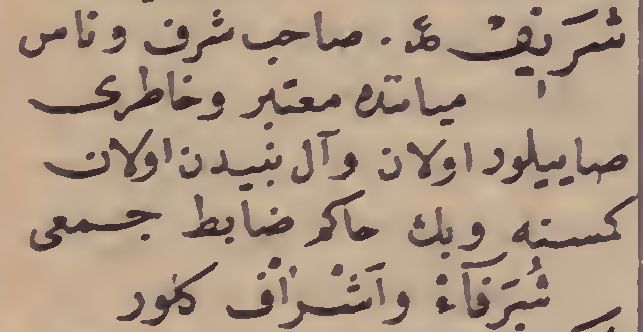 شَرَيف ﻋ. صاحب شرف وناس
میاننده معتبر وخاطری
صاییلور اولان وآل نبیدن اولان
کسنه وبك حاکم ضابط جمعی
شُرَفَآءْ واَشْرَافْ کلور